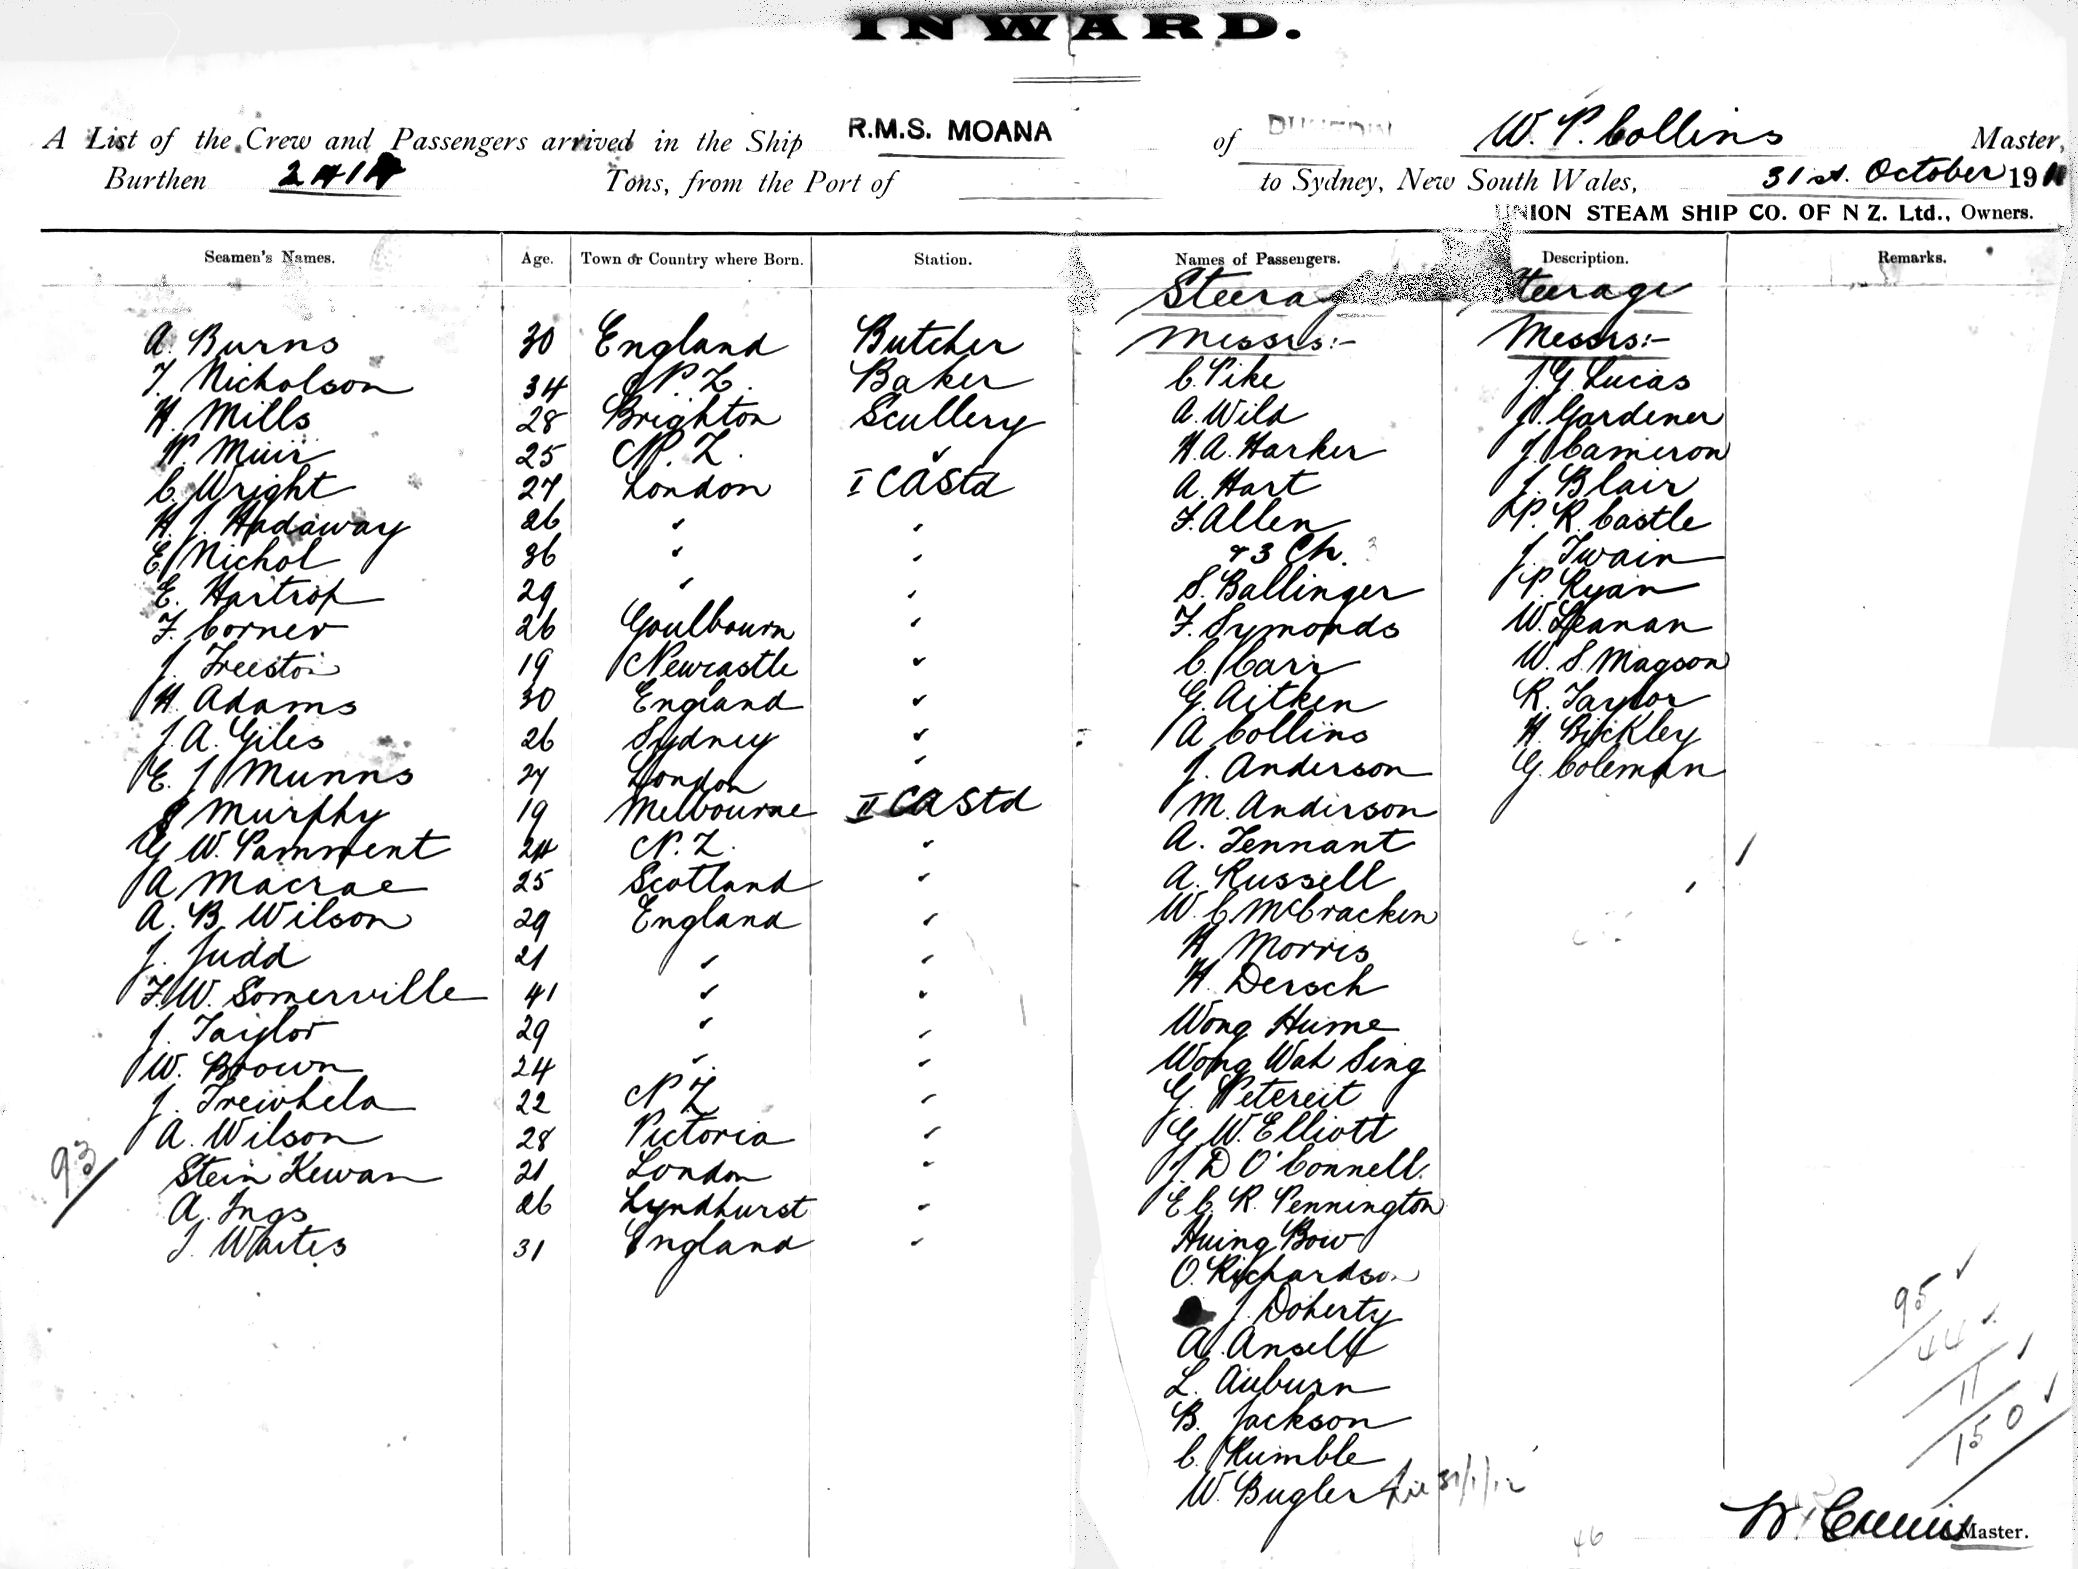 INWARD.
A List of the Crew and Passengers arrived in the Ship R.M.S. MOANA of DUNEDIN W. P. Collins Master,
Burthen 2414 Tons, from the Port of to Sydney, New South Wales, 31st. October 1911
UNION STEAM SHIP CO. OF N Z. Ltd., Owners.
Seamen's Names. Age. Town or Country where Born. Station. Names of Passengers. Description. Remarks.
Steerage Steerage
A. Burns 30 England Butcher Messrs:- Messrs:-
T. Nicholson 34 N Z. Baker C. Pike J. G. Lucas
H. Mills 28 Brighton Scullery A. Wild J. Gardener
W. Muir 25 N. Z. " H. A. Harker J. Cameron
C. Wright 27 London I CA Std A. Hart J. Blair
H. J. Hadaway 26 " " F. Allen P. R. Castle
E. Nichol 36 " " & 3 Ch. 3 J. Twain
E. Hartrop 29 " " S. Ballinger P. Ryan
F. Corner 26 Goulbourn " F. Symonds W. Leanan
J. Freeston 19 Newcastle " C. Carr W. S. Magson
H. Adams 30 England " G. Aitken R. Taylor
J. A. Giles 26 Sydney " A Collins H. Bickley
E. J. Munns 27 London " J. Anderson G. Coleman
Murphy 19 Melbourne II CA Std M. Anderson
G W. Pamment 24 N. Z. " A. Tennant
A Macrae 25 Scotland " A. Russell
A. B. Wilson 29 England " W. C. McCracken
J. Judd 21 " " H. Morris
F. W. Somerville 41 " " H. Dersch
J. Taylor 29 " " Wong Hume
W. Brown 24 " " Wong Wah Sing
J. Trewhela 22 N Z " G. Petereit
A. Wilson 28 Victoria " G. W. Elliott
93 Stein Kewan 21 London " J. D O'Connell.
A. Ings 26 Lyndhurst " E C. R. Pennington
T. Waites 31 England " Huing Bow
O. Richardson
J. Doherty
95
A. Ansell
44
L. Auburn
11
B. Jackson
150
C. Rumble
W. Bugler 31/1/12
W. Collins Master.
46